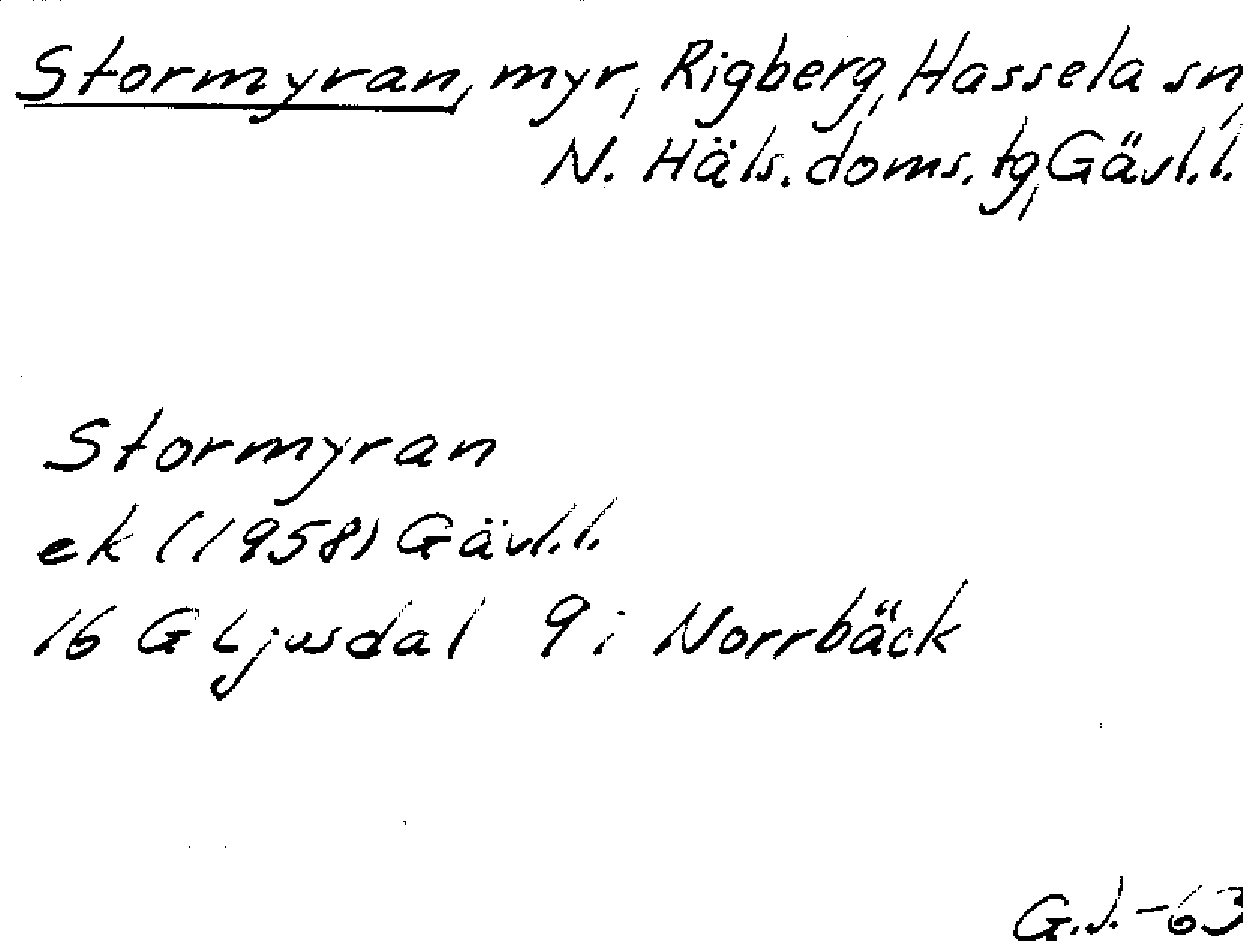 Stormyran, myr, Rigberg, Hassela sn,
N. Häls. doms. tg, Gävl.l.
Stormyran
ek (1958) Gävl.l.
16 G Ljusdal 9 i Norrbäck
G.J.-63